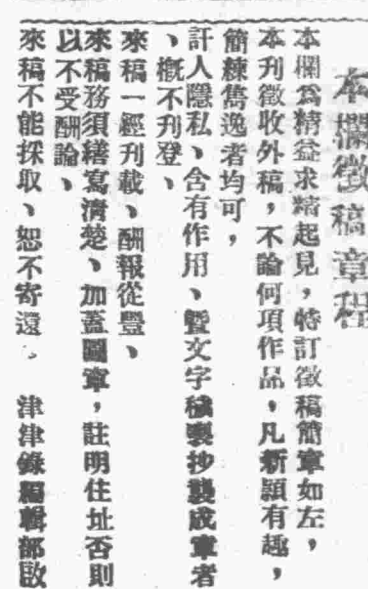 本欄徵稿章程
本欄爲精益求精起見，特訂徵稿簡章如左，
本刊徵收外稿，不論何項作品，凡新穎有趣，
簡練雋逸者均可，
訐人隱私、含有作用、暨文字穢褻抄襲成章者
、概不刊登、
來稿一經刊載、酬報從豐、
來稿務須繕寫清楚、加蓋圖章，註明住址否則
以不受酬論、
來稿不能採取、恕不寄還。 津津錄編輯部啟